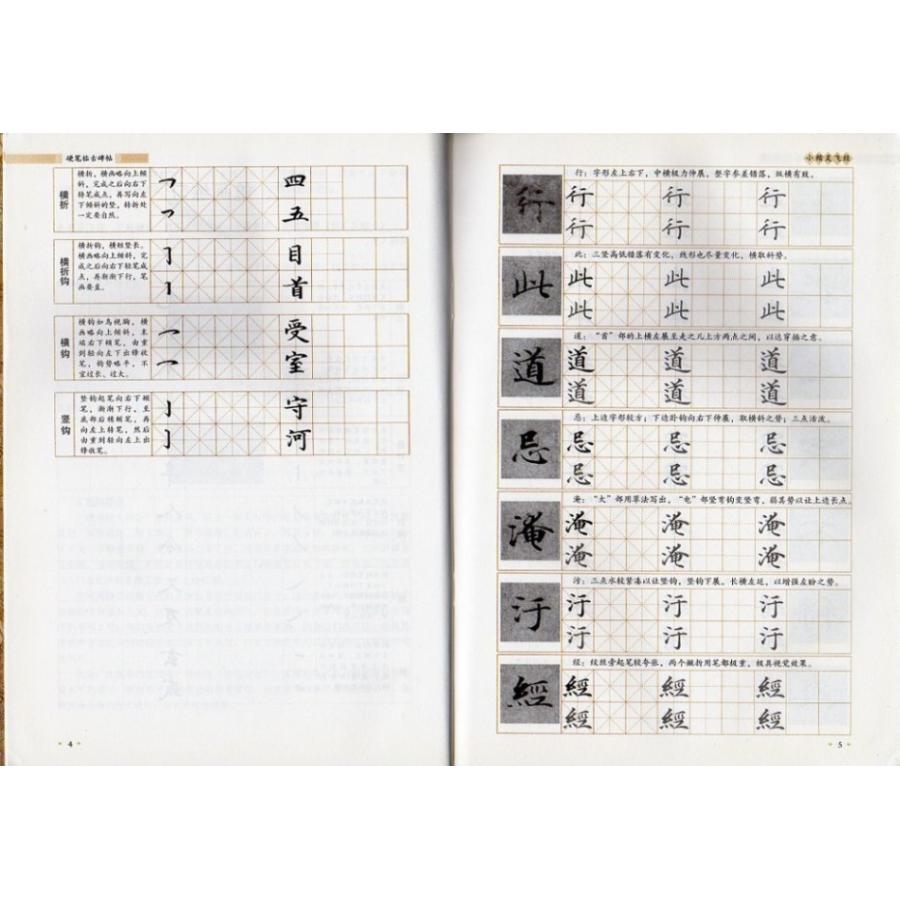 硬笔临古碑帖
横折
横折，横画略向上倾
斜，完成之后向右下
转笔成点，再写向左
下倾斜的竖，转折处
一定要自然。
四
五
横折钩
横折钩，横短竖长。
横画略向上倾斜，完
成之后向右下轻笔成
点，再渐渐下行，笔
画要直。
目
首
横钩
横钩如鸟视胸，横
画略向上倾斜，末
端右下倾笔，由重
到轻向左下出锋收
笔，钩势略平，不
宜过长、过大。
受
室
竖钩
竖钩起笔向右下倾
笔，渐渐下行，至
底部后稍顿笔，再
向左上转笔，然后
由重到轻向左上出
锋收笔。
守
河
4
小楷灵飞经
行：字形左上右下，中横极力伸展，整字参差错落，纵横有致。
行 行 行 行
行 行 行
此：三竖高低错落有变化，线形也尽量变化，横取斜势。
此 此 此 此
此 此 此
道：“首”部的上横左展至走之儿上方两点之间，以达穿插之意。
道 道 道 道
道 道 道
忌：上边字形较方；下边卧钩向右下伸展，取横斜之势；三点活泼。
忌 忌 忌 忌
忌 忌 忌
淹：“大”部用草法写出，“电”部竖弯钩变竖弯，弱其势以让上边长点。
淹 淹 淹 淹
淹 淹 淹
污：三点水较紧凑以让竖钩，竖钩下展。长横左延，以增强左盼之势。
汙 汙 汙 汙
汙 汙 汙
经：绞丝旁起笔较夸张，两个撇折用笔都极重，极具视觉效果。
經 經 經 經
經 經 經
5